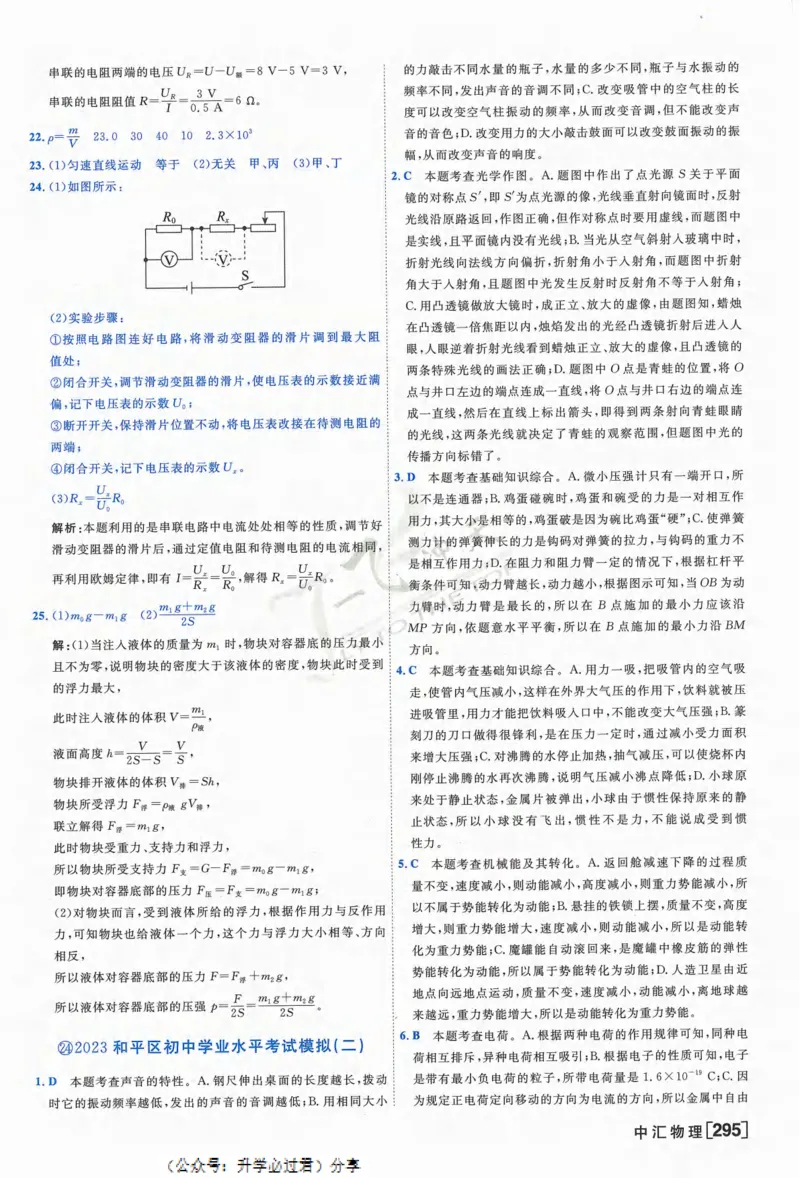 串联的电阻两端的电压 U_R=U-U_额=8 V-5 V=3 V,
串联的电阻阻值 R=U_R/I=3 V/0.5 A=6 Ω。
22. ρ=m/V 23.0 30 40 10 2.3×10³
23. (1)匀速直线运动 等于 (2)无关 甲、丙 (3)甲、丁
24. (1)如图所示:
R₀ Rₓ
V V
S
(2)实验步骤:
①按照电路图连好电路,将滑动变阻器的滑片调到最大阻
值处;
②闭合开关,调节滑动变阻器的滑片,使电压表的示数接近满
偏,记下电压表的示数 U₀;
③断开开关,保持滑片位置不动,将电压表改接在待测电阻的
两端;
④闭合开关,记下电压表的示数 Uₓ。
(3)Rₓ=Uₓ/U₀ R₀
解析:本题利用的是串联电路中电流处处相等的性质,调节好
滑动变阻器的滑片后,通过定值电阻和待测电阻的电流相同,
再利用欧姆定律,即有 I=Uₓ/Rₓ=U₀/R₀,解得 Rₓ=Uₓ/U₀ R₀。
25. (1)m₀g-m₁g (2)(m₁g+m₂g)/2S
解:(1)当注入液体的质量为 m₁ 时,物块对容器底的压力最小
且不为零,说明物块的密度大于该液体的密度,物块此时受到
的浮力最大,
此时注入液体的体积 V=m₁/ρ液,
液面高度 h=V/(2S-S)=V/S,
物块排开液体的体积 V排=Sh,
物块所受浮力 F浮=ρ液 gV排,
联立解得 F浮=m₁g,
此时物块受重力、支持力和浮力,
所以物块所受支持力 F支=G-F浮=m₀g-m₁g,
即物块对容器底部的压力 F压=F支=m₀g-m₁g;
(2)对物块而言,受到液体所给的浮力,根据作用力与反作用
力,可知物块也给液体一个力,这个力与浮力大小相等、方向
相反,
所以液体对容器底部的压力 F=F浮+m₂g,
所以液体对容器底部的压强 p=F/2S=(m₁g+m₂g)/2S。
㉔2023 和平区初中学业水平考试模拟(二)
1. D 本题考查声音的特性。A. 钢尺伸出桌面的长度越长,拨动
时它的振动频率越低,发出的声音的音调越低;B. 用相同大小
的力敲击不同水量的瓶子,水量的多少不同,瓶子与水振动的
频率不同,发出声音的音调不同;C. 改变吸管中的空气柱的长
度可以改变空气柱振动的频率,从而改变音调,但不能改变声
音的音色;D. 改变用力的大小敲击鼓面可以改变鼓面振动的振
幅,从而改变声音的响度。
2. C 本题考查光学作图。A. 题图中作出了点光源 S 关于平面
镜的对称点 S′,即 S′为点光源的像,光线垂直射向镜面时,反射
光线沿原路返回,作图正确,但作对称点时要用虚线,而题图中
是实线,且平面镜内没有光线;B. 当光从空气斜射入玻璃中时,
折射光线向法线方向偏折,折射角小于入射角,而题图中折射
角大于入射角,且题图中光发生反射时反射角不等于入射角;
C. 用凸透镜做放大镜时,成正立、放大的虚像,由题图知,蜡烛
在凸透镜一倍焦距以内,烛焰发出的光经凸透镜折射后进入人
眼,人眼逆着折射光线看到蜡烛正立、放大的虚像,且凸透镜的
两条特殊光线的画法正确;D. 题图中 O 点是青蛙的位置,将 O
点与井口左边的端点连成一直线,将 O 点与井口右边的端点连
成一直线,然后在直线上标出箭头,即得到两条射向青蛙眼睛
的光线,这两条光线就决定了青蛙的观察范围,但题图中光的
传播方向标错了。
3. D 本题考查基础知识综合。A. 微小压强计只有一端开口,所
以不是连通器;B. 鸡蛋碰碗时,鸡蛋和碗受的力是一对相互作
用力,其大小是相等的,鸡蛋破是因为碗比鸡蛋“硬”;C. 使弹簧
测力计的弹簧伸长的力是钩码对弹簧的拉力,与钩码的重力不
是相互作用力;D. 在阻力和阻力臂一定的情况下,根据杠杆平
衡条件可知,动力臂越长,动力越小,根据图示可知,当 OB 为动
力臂时,动力臂是最长的,所以在 B 点施加的最小力应该沿
MP 方向,依题意水平平衡,所以在 B 点施加的最小力沿 BM
方向。
4. C 本题考查基础知识综合。A. 用力一吸,把吸管内的空气吸
走,使管内气压减小,这样在外界大气压的作用下,饮料就被压
进吸管里,用力才能把饮料吸入口中,不能改变大气压强;B. 篆
刻刀的刀口做得很锋利,是在压力一定时,通过减小受力面积
来增大压强;C. 对沸腾的水停止加热,抽气减压,可以使烧杯内
刚停止沸腾的水再次沸腾,说明气压减小沸点降低;D. 小球原
来处于静止状态,金属片被弹出,小球由于惯性保持原来的静
止状态,所以小球没有飞出,惯性不是力,不能说成受到惯
性力。
5. C 本题考查机械能及其转化。A. 返回舱减速下降的过程质
量不变,速度减小,则动能减小,高度减小,则重力势能减小,所
以不属于势能转化为动能;B. 悬挂的铁锁上摆,质量不变,高度
增大,则重力势能增大,速度减小,则动能减小,所以是动能转
化为重力势能;C. 魔罐能自动滚回来,是魔罐中橡皮筋的弹性
势能转化为动能,所以属于势能转化为动能;D. 人造卫星由近
地点向远地点运动,质量不变,速度减小,动能减小,离地球越
来越远,重力势能增大,所以是动能转化为重力势能。
6. B 本题考查电荷。A. 根据两种电荷的作用规律可知,同种电
荷相互排斥,异种电荷相互吸引;B. 根据电子的性质可知,电子
是带有最小负电荷的粒子,所带电荷量是 1.6×10⁻¹⁹ C;C. 因
为规定正电荷定向移动的方向为电流的方向,所以金属中自由
中汇物理[295]
(公众号:升学必过君)分享